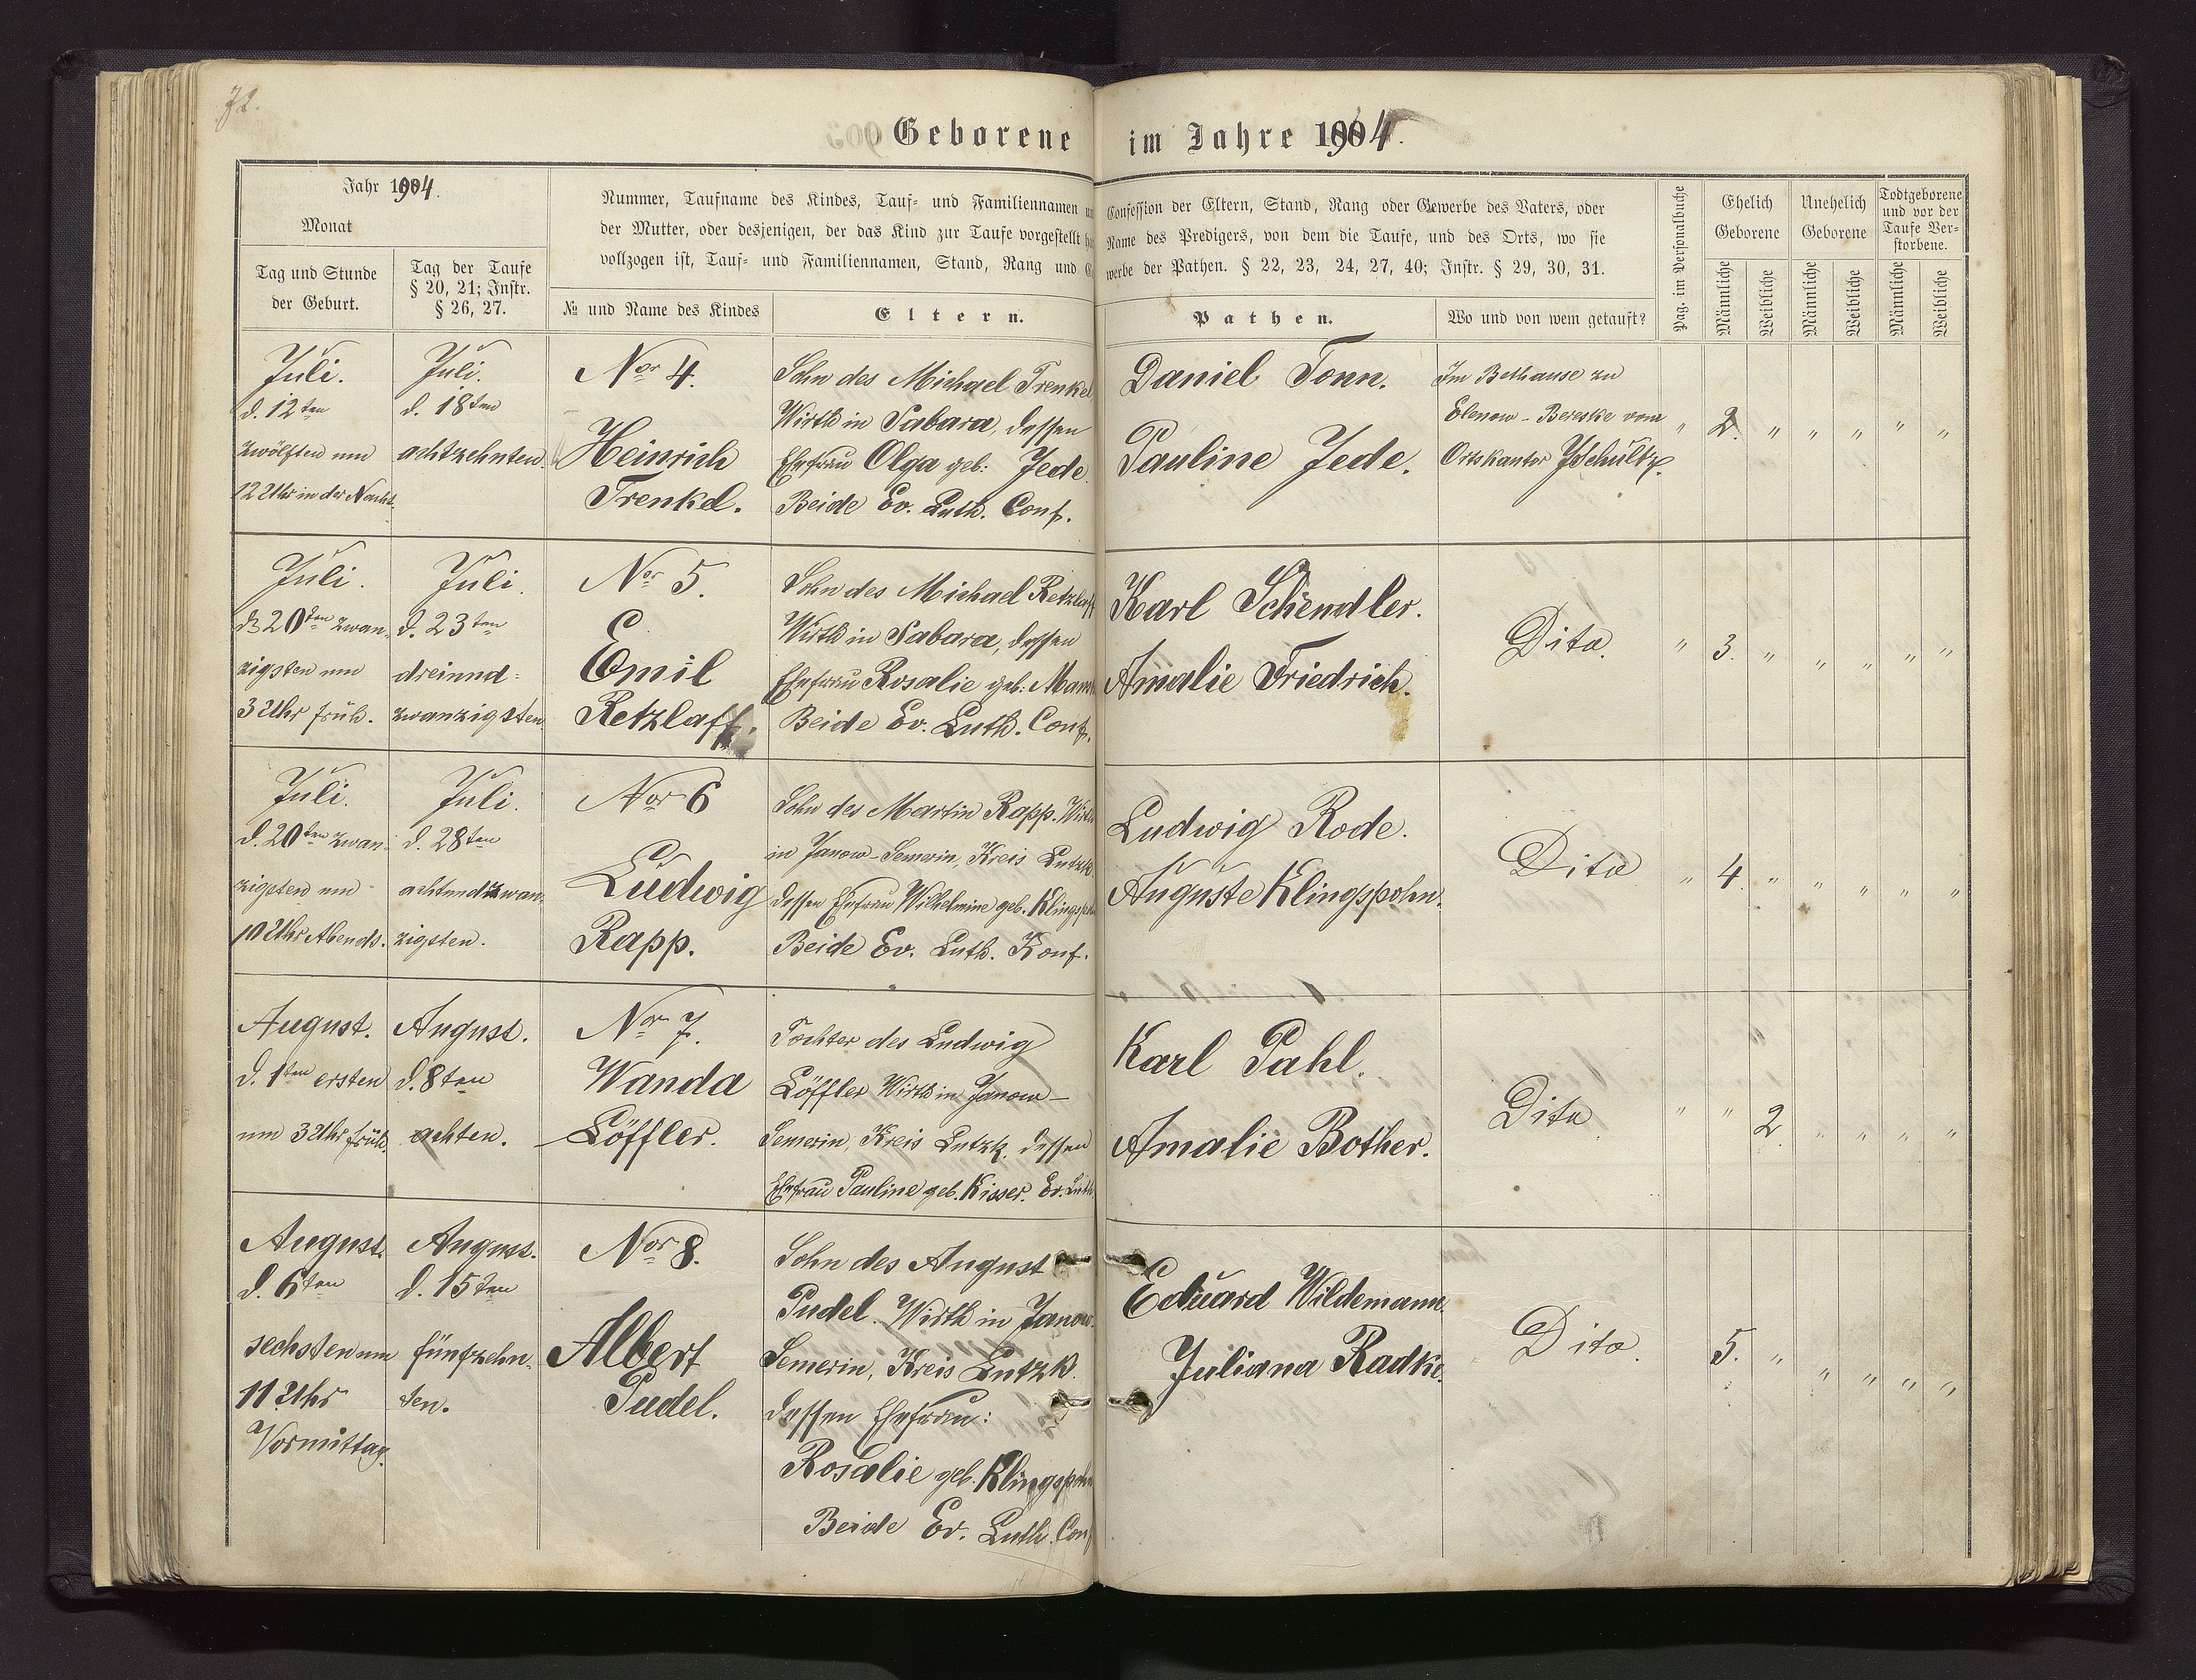 72.
Geborene im Jahre 1904.
Jahr 1904.
Monat
Tag und Stunde
der Geburt.
Tag der Taufe
§ 20, 21; Instr.
§ 26, 27.
Nummer, Taufname des Kindes, Tauf- und Familiennamen
der Mutter, oder desjenigen, der das Kind zur Taufe vorgestellt
vollzogen ist, Tauf- und Familiennamen, Stand, Rang und
№ und Name des Kindes
Eltern.
Confession der Eltern, Stand, Rang oder Gewerbe des Vaters, oder
Name des Predigers, von dem die Taufe, und des Orts, wo sie
werbe der Pathen. § 22, 23, 24, 27, 40; Instr. § 29, 30, 31.
Pathen.
Wo und von wem getauft?
Pag. im Personalbuche
Ehelich
Geborene
Unehelich
Geborene
Todtgeborene
und vor der
Taufe Ver-
storbene.
Männliche
Weibliche
Männliche
Weibliche
Männliche
Weibliche
Juli.
d. 12ten
zwölften um
12 Uhr in der Nacht.
Juli.
d. 18ten
achtzehnten
Nor 4.
Heinrich
Trenkel.
Sohn des Michael Trenkel
Wirth in Sabara, dessen
Ehefrau Olga geb: Jede
Beide Ev. Luth. Conf.
Daniel Tonn.
Pauline Jede.
Im Bethause zu
Elenow - Bereske vom
Ortskantor JSchultz.
" 2. " " " " "
Juli.
d. 20ten zwan-
zigsten um
3 Uhr früh.
Juli.
d. 23ten
dreiund-
zwanzigsten
Nor 5.
Emil
Retzlaff.
Sohn des Michael Retzlaff
Wirth in Sabara, dessen
Ehefrau Rosalie geb:
Beide Ev. Luth. Conf.
Karl Schendler.
Amalie Friedrich.
Dito.
" 3. " " " " "
Juli.
d. 20ten zwan-
zigsten um
10 Uhr Abends.
Juli.
d. 28ten
achtundzwan-
zigsten.
Nor 6
Ludwig
Rapp.
Sohn des Martin Rapp. Wirth
in Janow-Semerin, Kreis Lutzk.
dessen Ehefrau Wilhelmine geb. Klingspohn
Beide Ev. Luth. Konf.
Ludwig Rode.
Auguste Klingspohn.
Dito
" 4. " " " " "
August.
d. 1ten ersten
um 3 Uhr früh.
August.
d. 8ten
achten.
Nor 7.
Wanda
Löffler.
Tochter des Ludwig
Löffler Wirth in Janow-
Semerin, Kreis Lutzk. dessen
Ehefrau Pauline geb. Kisser. Ev. Luth.
Karl Pahl.
Amalie Bother.
Dito
" " 2. " " " "
August.
d. 6ten
sechsten um
11 Uhr
Vormittag.
August.
d. 15ten
fünfzehn-
ten.
Nor 8.
Albert
Pudel.
Sohn des August
Pudel. Wirth in Janow-
Semerin, Kreis Lutzk.
dessen Ehefrau:
Rosalie geb. Klingspohn
Beide Ev. Luth. Conf
Eduard Wildemann.
Juliana Radke.
Dito.
5. " " " " "